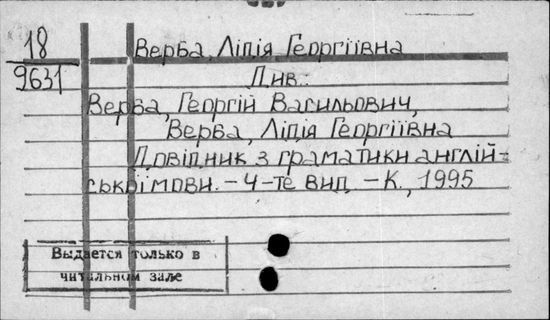 18
9631
Верба, Лідія Георгіївна
Див.:
Верба, Георгій Васильович,
Верба, Лідія Георгіївна
Довідник з граматики англій-
ської мови. – 4-те вид. – К., 1995
Выдается только в
читальном зале